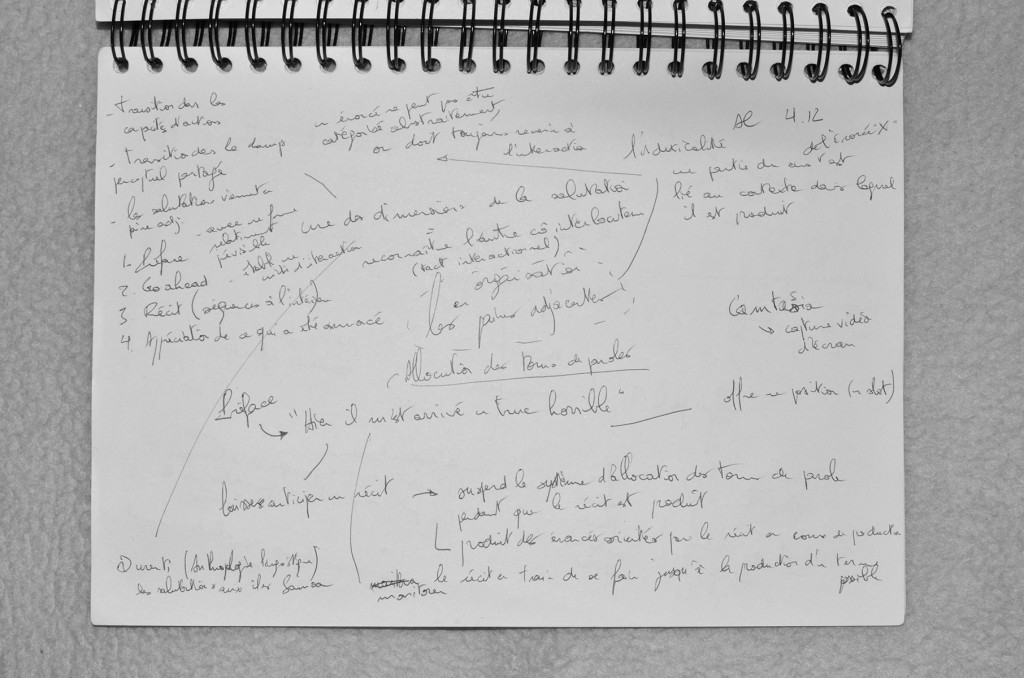 AC 4.12
- Transition dans les
capités d'action
- Transition dans le champ
perceptuel partagé
- les salutations
paire adj.
1. Préface - avec une forme
relativement
prévisible
2. Go ahead
3 Récit (séquences à l'intérieur)
4. Appréciation de ce qui a été annoncé
un énoncé ne peut pas être
catégorisé abstraitement,
on doit toujours revenir à
l'interaction
l'indexicalité de l'énoncé "X"
une partie du sens est
lié au contexte dans lequel
il est produit
une des dimensions de la salutation
reconnaître l'autre cô interlocuteur
(tact interactionnel)
en organisation
les paires adjacentes
Camtasia
capture vidéo
d'écran
Allocution des tours de paroles
offre une position (un slot)
Préface
"Hier il m'est arrivé un truc horrible"
laisser anticiper un récit
suspend le système d'allocation des tours de parole
pendant que le récit est produit
produit des énoncés orientés par le récit en cours de production
monitorer le récit en train de se faire jusqu'à la production d'un
possible
Duranti (Anthropologie linguistique)
les salutations aux îles Samoa